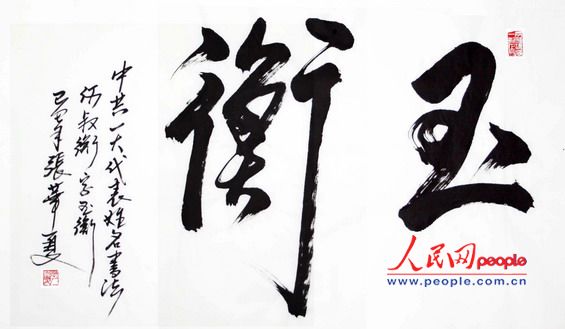 玉衡
中共一大代表姓名書法
何叔衡字玉衡
己丑年張華夏
人民网people
www.people.com.cn